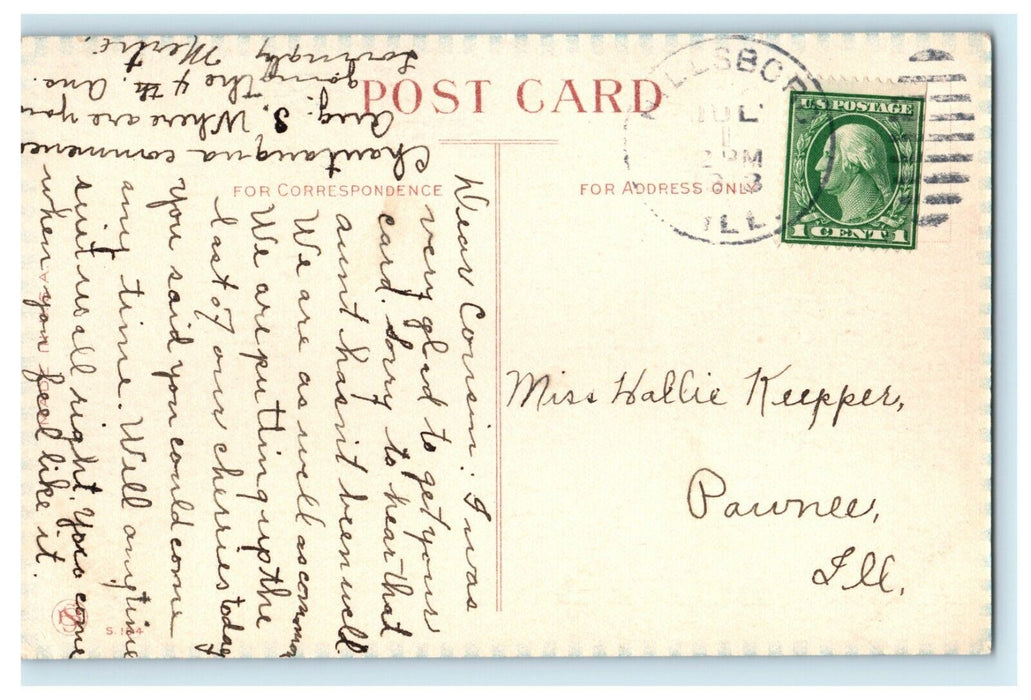 POST CARD
FOR CORRESPONDENCE
FOR ADDRESS ONLY
HILLSBORO
JUL
1
2 PM
ILL.
U.S. POSTAGE
1 CENT 1
Miss Hallie Keepper,
Pawnee,
Ill.
Dear Cousin: I was
very glad to get your
card. Sorry to hear that
aunt hasn't been well.
We are as well as common
We are putting up the
last of our cherries today
You said you could come
any time. Will anytime
suit us all right. You come
when you feel like it.
Chautauqua commences
Aug. 8. Where are you
going the 4th. Ans.
Lovingly
Mertie,